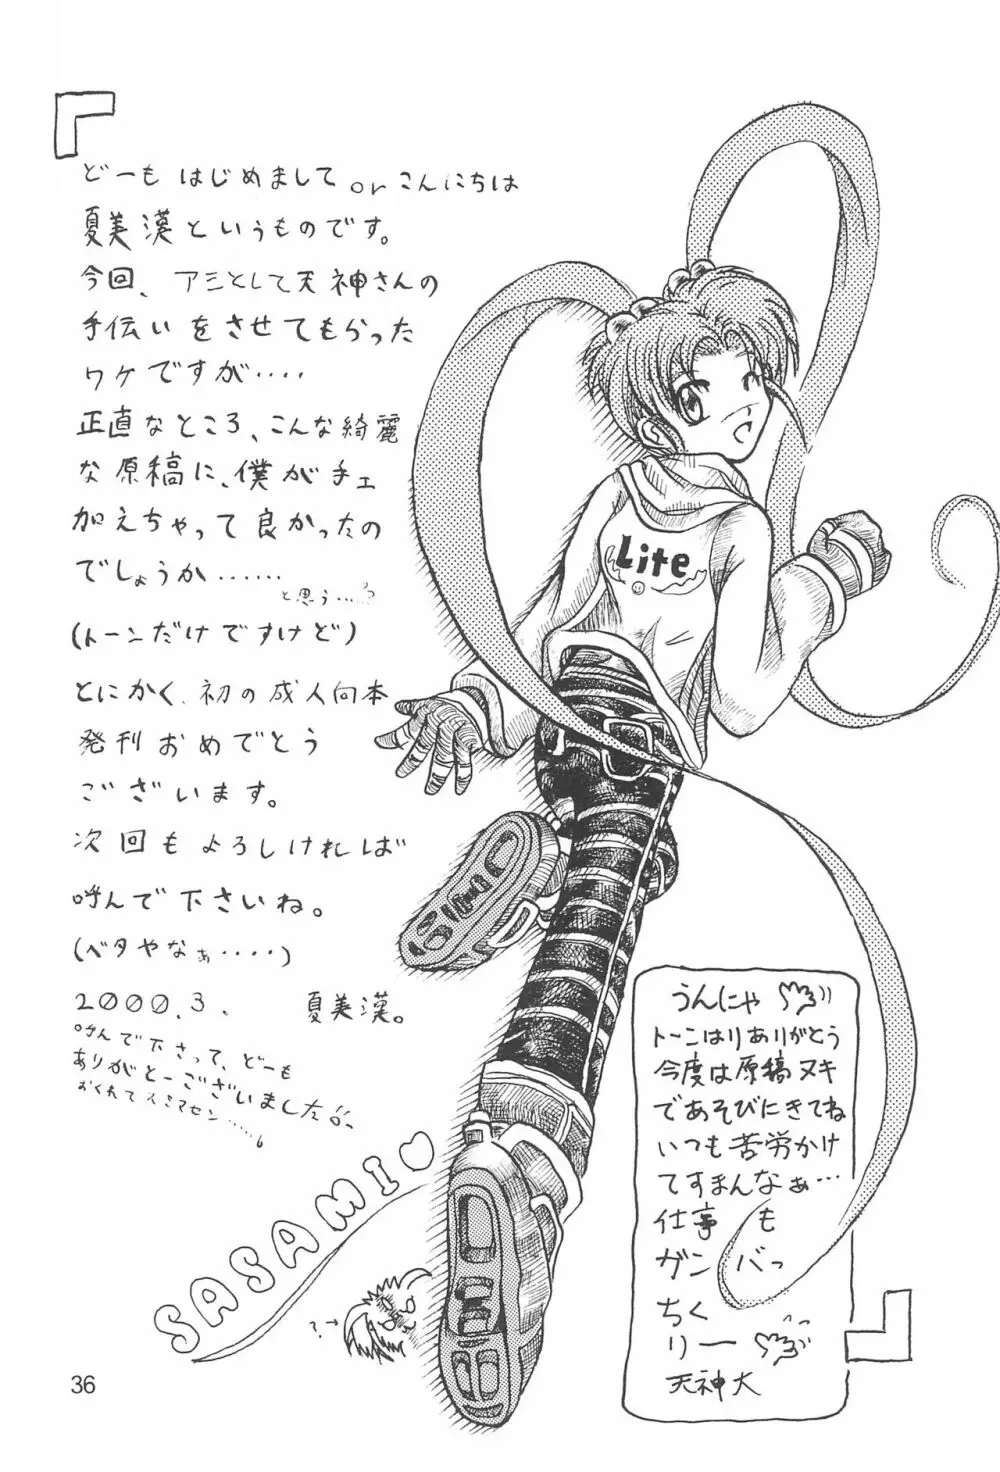 どーも はじめまして or こんにちは
夏美漢というものです。
今回、アシとして天神さんの
手伝いをさせてもらった
ワケですが‥‥
正直なところ、こんな綺麗
な原稿に、僕がチェ
加えちゃって良かったの
でしょうか‥‥‥
と思う‥‥
(トーンだけですけど)
とにかく、初の成人向本
発刊おめでとう
ございます。
次回もよろしければ
呼んで下さいね。
(ベタやなぁ‥‥‥)
2000.3. 夏美漢。
呼んで下さって、どーも
ありがとーございました
おくれてスミマセン‥‥‥
SASAMI♡
?→
Lite
うんにゃ
トーンはりありがとう
今度は原稿ヌキ
であそびにきてね
いつも苦労かけ
てすまんなぁ…
仕事も
ガンバっ
ちく
りー
天神大
36